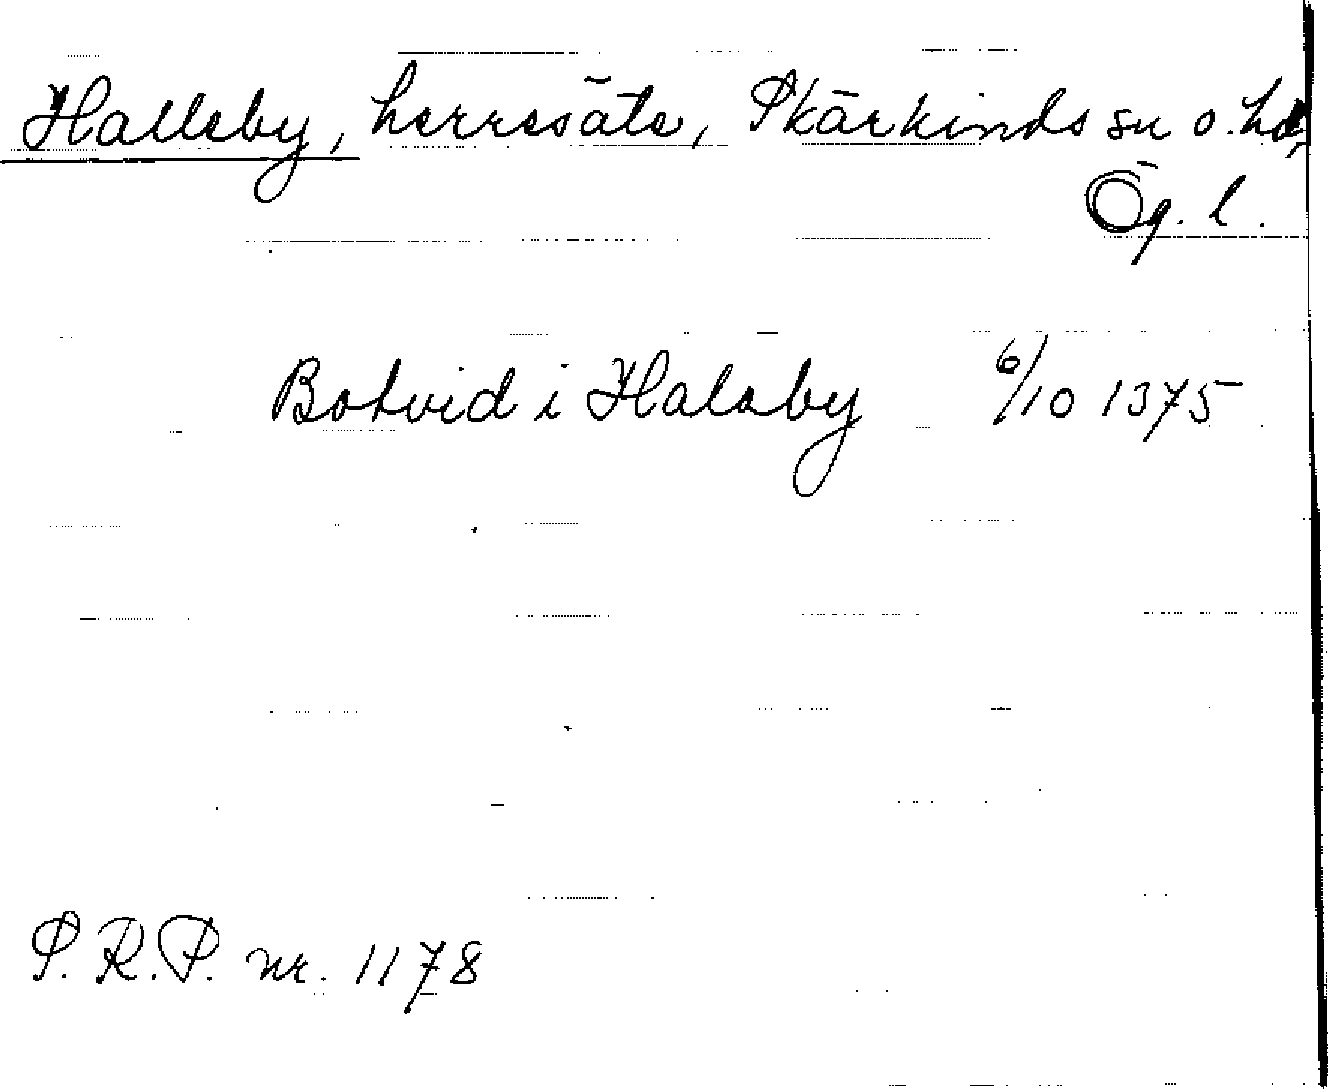 Halleby, herresäte, Skärkinds sn o. hd,
Ög. l.
Botvid i Halaby 6/10 1375
S.R.P. nr. 1178